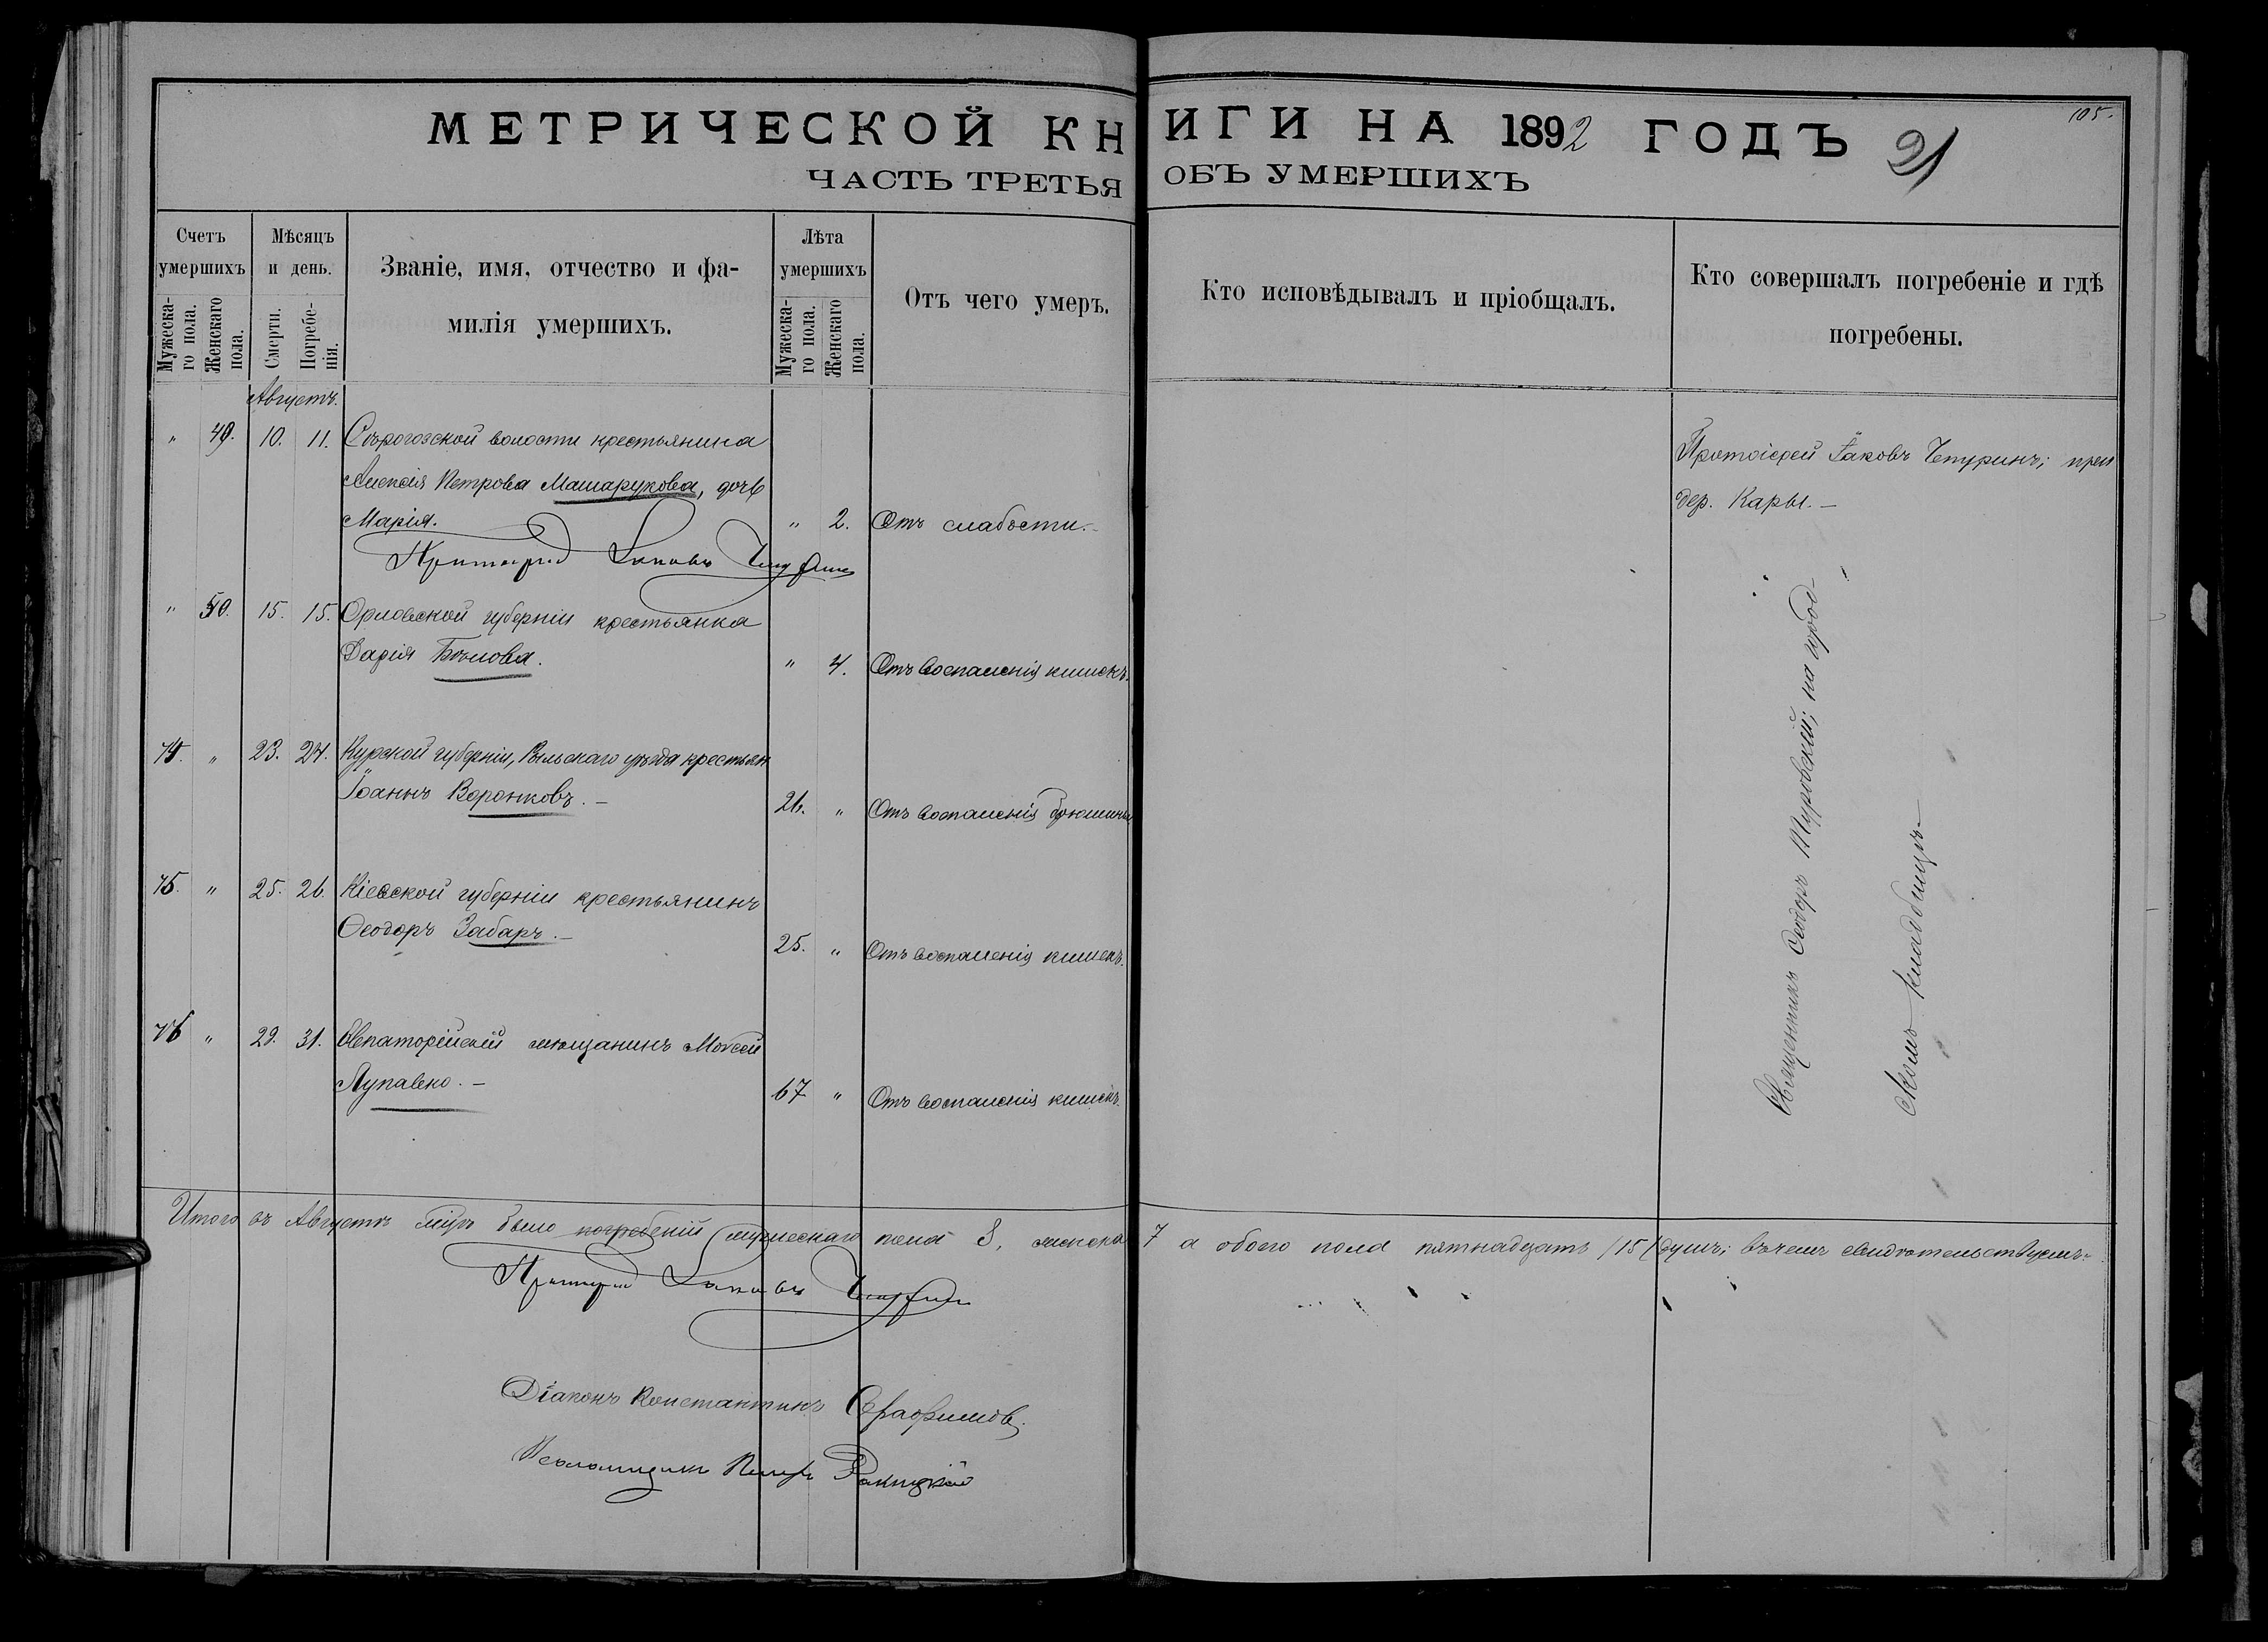 105.
МЕТРИЧЕСКОЙ КНИГИ НА 1892 ГОДЪ 21
ЧАСТЬ ТРЕТЬЯ ОБЪ УМЕРШИХЪ
Счетъ умершихъ
Мужескаго пола.
Женскаго пола.
Мѣсяцъ и день.
Смерти.
Погребенія.
Званіе, имя, отчество и фамилія умершихъ.
Лѣта умершихъ
Мужескаго пола.
Женскаго пола.
Отъ чего умеръ.
Кто исповѣдывалъ и пріобщалъ.
Кто совершалъ погребеніе и гдѣ погребены.
Августъ.
" 49. 10. 11. Сѣрогозской волости крестьянина
Алексія Петрова Машарукова, дочь
Марія. " 2. Отъ слабости.
Протоіерей Іаковъ Чепуринъ; при
дер. Кары.
Протоіерей Іаковъ Чепуринъ
" 50. 15. 15. Орловской губерніи крестьянка
Дарія Бѣлова. " 4. Отъ воспаленія кишекъ.
74. " 23. 24. Курской губерніи, Рыльскаго уѣзда крестьян
Іоаннъ Воронковъ. 26. " Отъ воспаленія брюшины
75. " 25. 26. Кіевской губерніи крестьянинъ
Ѳеодоръ Забаръ. 25. " Отъ воспаленія кишекъ.
76 " 29. 31. Евпаторійскій мѣщанинъ Моѵсей
Лупавко. 67 " Отъ воспаленія кишекъ.
Священникъ Ѳеодоръ Туровскій; на город-
скомъ кладбищѣ
Итого въ Августѣ мцѣ было погребеній мужескаго пола 8, женска 7 а обоего пола пятнадцать /15/ душъ; въ чемъ свидѣтельствуемъ:
Протоіерей Іаковъ Чепуринъ
Діаконъ Константинъ Серафимовъ.
Псаломщикъ Петръ Ракицкій